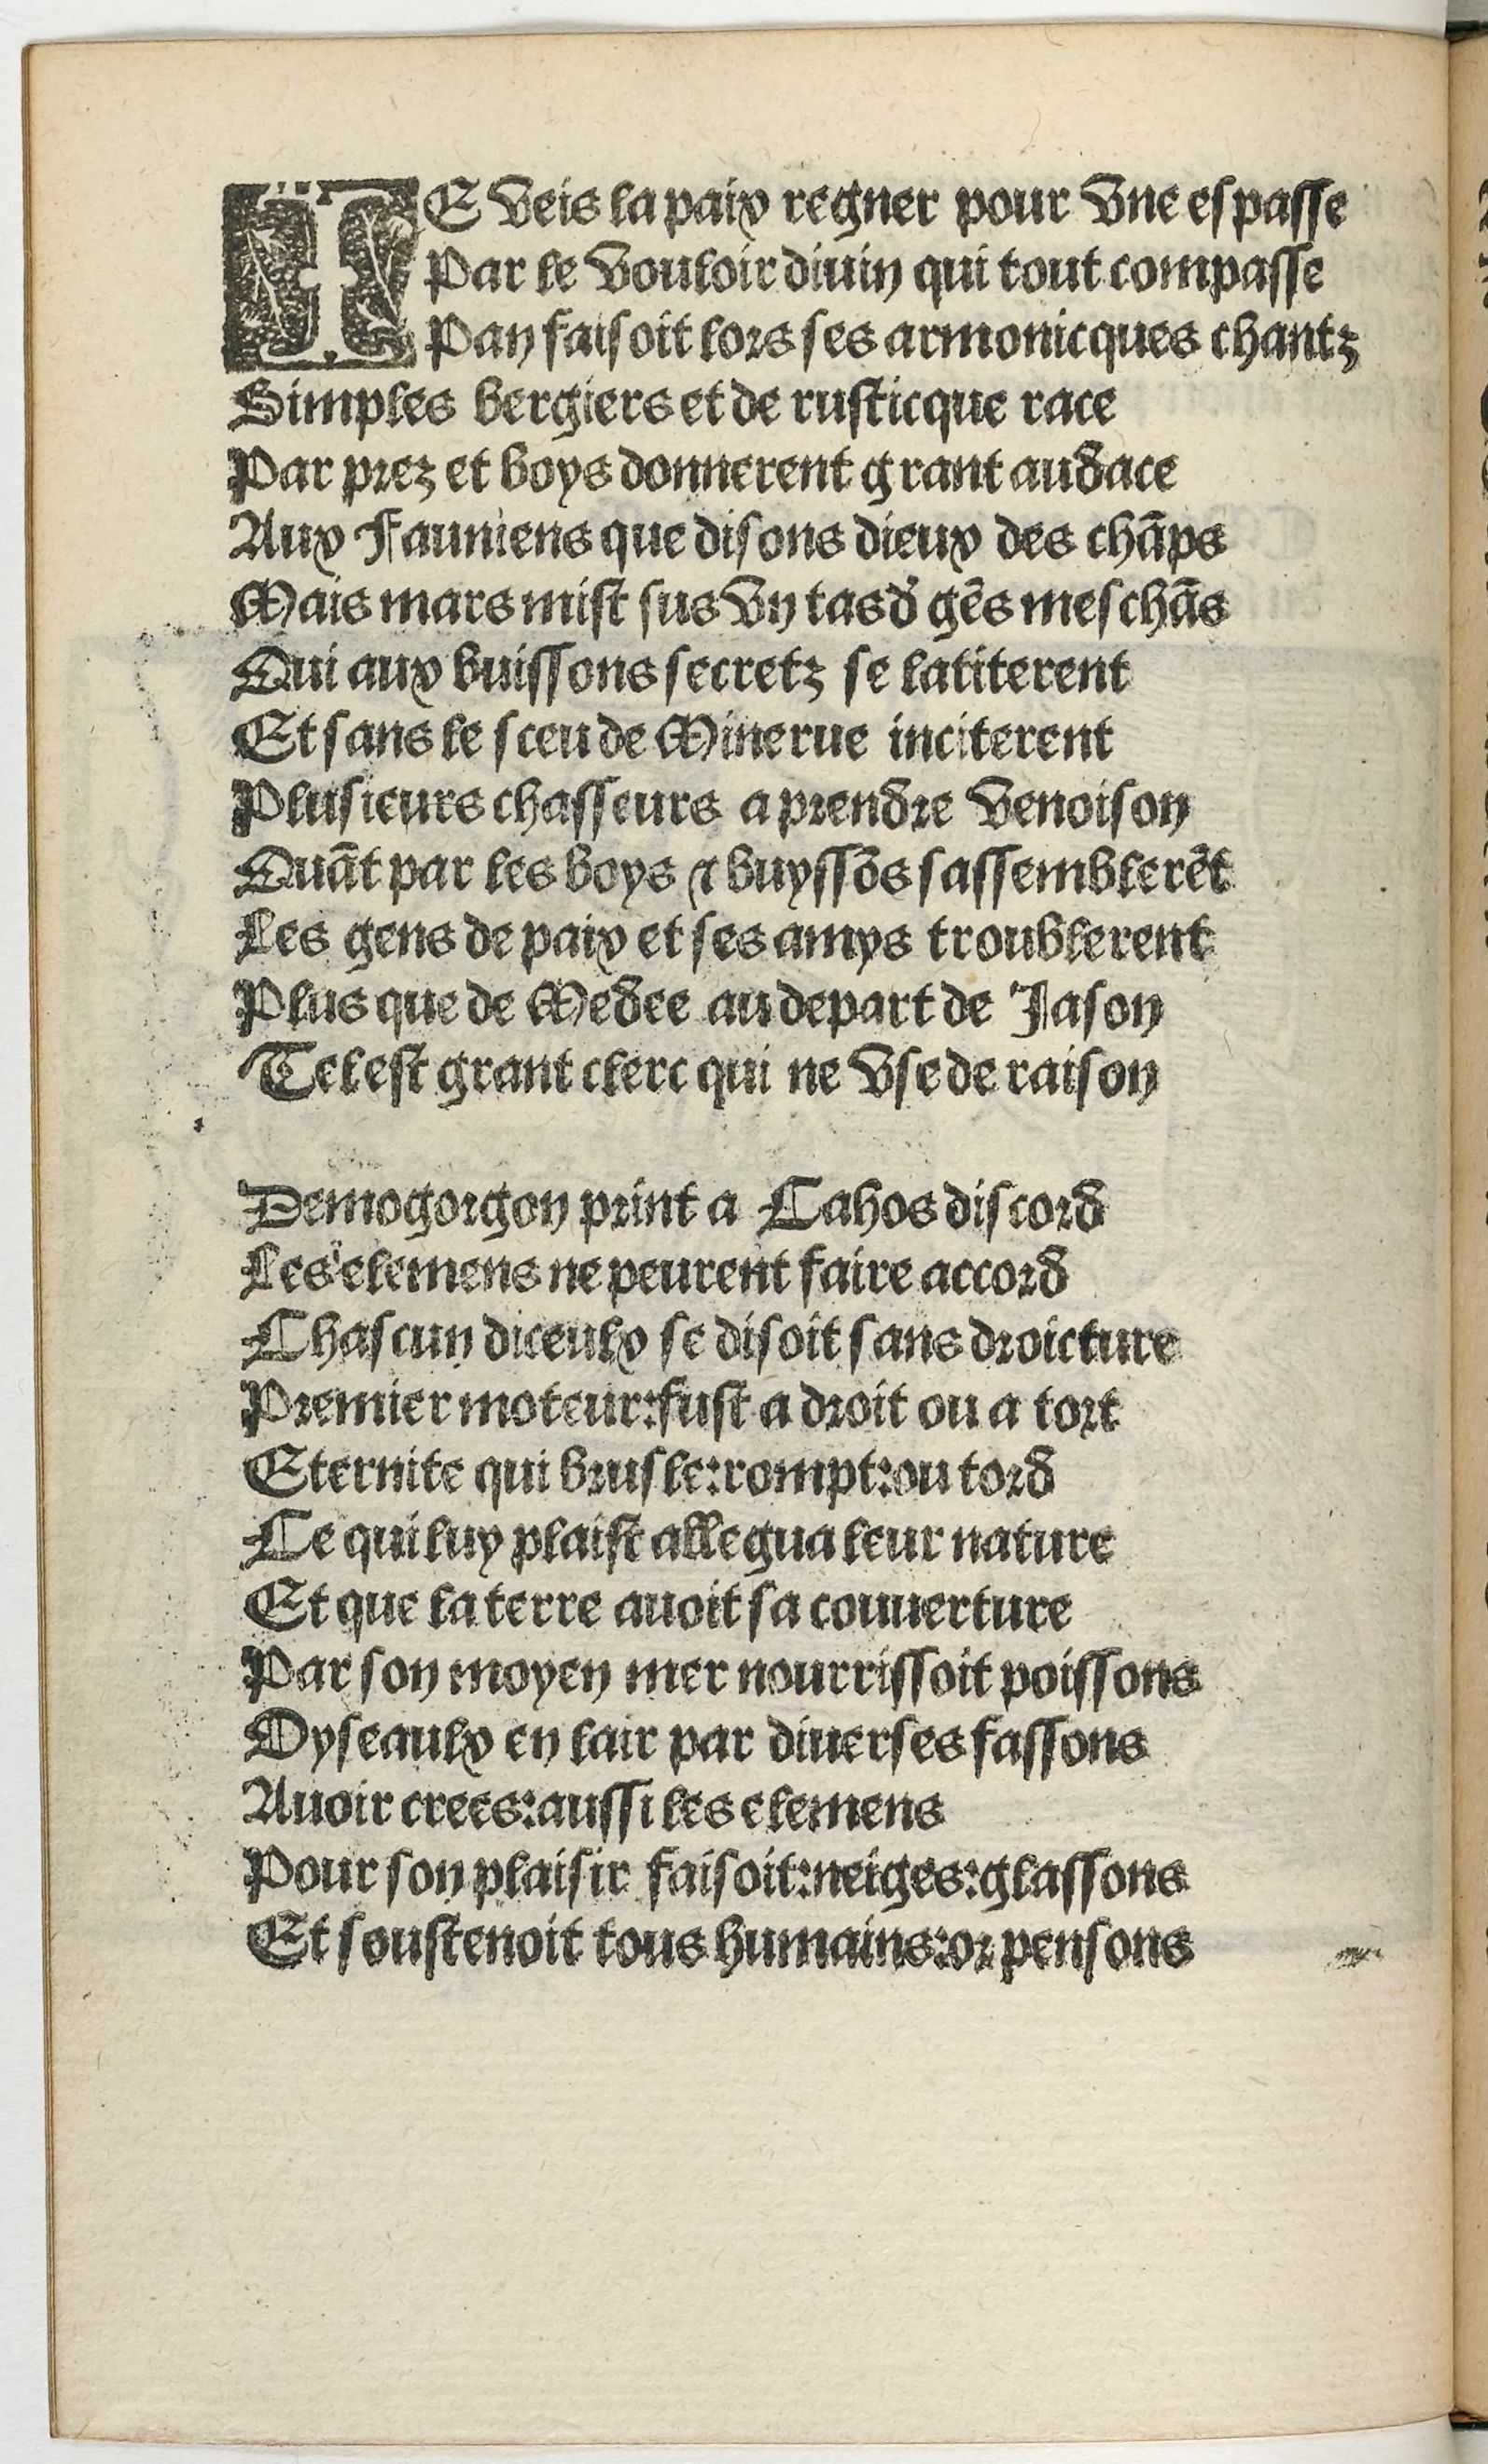 IE veis la paix regner pour vne espasse
Par le vouloir diuin qui tout compasse
Pan faisoit lors ses armonicques chantz
Simples bergiers et de rusticque race
Par prez et boys donnerent grant audace
Aux Fauniens que disons dieux des chãps
Mais mars mist sus vn tas d' gẽs meschãs
Qui aux buissons secretz se latiterent
Et sans le sceu de Minerue inciterent
Plusieurs chasseurs a prendre venoison
Quãt par les boys & buyssõs sassemblerẽt
Les gens de paix et ses amys troublerent
Plus que de Medee au depart de Jason
Tel est grant clerc qui ne vse de raison
Demogorgon print a Cahos discord
Les elemens ne peurent faire accord
Chascun diceulx se disoit sans droicture
Premier moteur:fust a droit ou a tort
Eternite qui brusle:rompt:ou tord
Ce qui luy plaist allegua leur nature
Et que la terre auoit sa couuerture
Par son moyen mer nourrissoit poissons
Oyseaulx en lair par diuerses fassons
Auoir crees:aussi les elemens
Pour son plaisir faisoit:neiges:glassons
Et soustenoit tous humains:or pensons